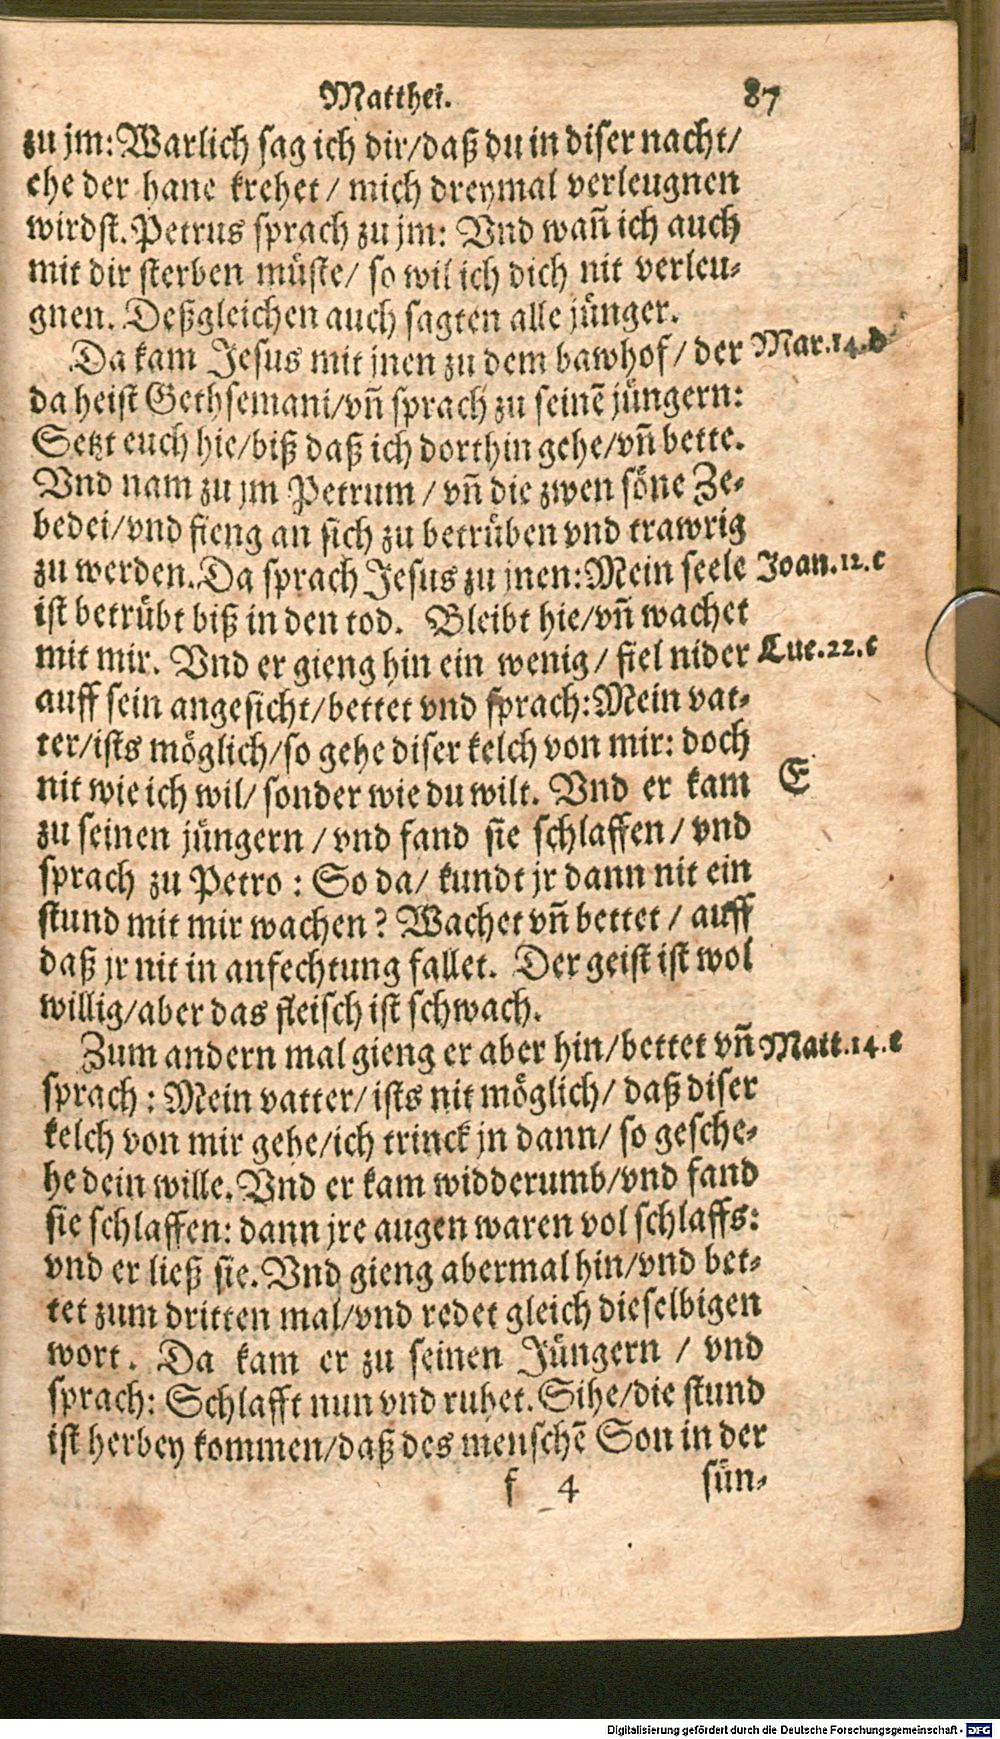 Matthei. 87
zu jm: Warlich sag ich dir/daß du in diser nacht/
ehe der hane krehet/ mich dreymal verleugnen
wirdst. Petrus sprach zu jm: Vnd wañ ich auch
mit dir sterben müste/ so wil ich dich nit verleu-
gnen. Deßgleichen auch sagten alle jünger.
Da kam Jesus mit jnen zu dem bawhof/ der Mar.14.d
da heist Gethsemani/vñ sprach zu seinẽ jüngern:
Setzt euch hie/biß daß ich dorthin gehe/vñ bette.
Vnd nam zu jm Petrum/ vñ die zwen söne Ze-
bedei/vnd fieng an sich zu betrüben vnd trawrig
zu werden. Da sprach Jesus zu jnen: Mein seele Joan.12.c
ist betrübt biß in den tod. Bleibt hie/vñ wachet
mit mir. Vnd er gieng hin ein wenig/ fiel nider Luc.22.c
auff sein angesicht/bettet vnd sprach: Mein vat-
ter/ists möglich/so gehe diser kelch von mir: doch
nit wie ich wil/ sonder wie du wilt. Vnd er kam E
zu seinen jüngern/ vnd fand sie schlaffen/ vnd
sprach zu Petro: So da/ kundt jr dann nit ein
stund mit mir wachen? Wachet vñ bettet/ auff
daß jr nit in anfechtung fallet. Der geist ist wol
willig/aber das fleisch ist schwach.
Zum andern mal gieng er aber hin/bettet vñ Matt.14.c
sprach: Mein vatter/ ists nit möglich/ daß diser
kelch von mir gehe/ich trinck jn dann/ so gesche-
he dein wille. Vnd er kam widderumb/vnd fand
sie schlaffen: dann jre augen waren vol schlaffs:
vnd er ließ sie. Vnd gieng abermal hin/vnd bet-
tet zum dritten mal/vnd redet gleich dieselbigen
wort. Da kam er zu seinen Jüngern/ vnd
sprach: Schlafft nun vnd ruhet. Sihe/die stund
ist herbey kommen/daß des menschẽ Son in der
f 4 sün-
Digitalisierung gefördert durch die Deutsche Forschungsgemeinschaft - DFG